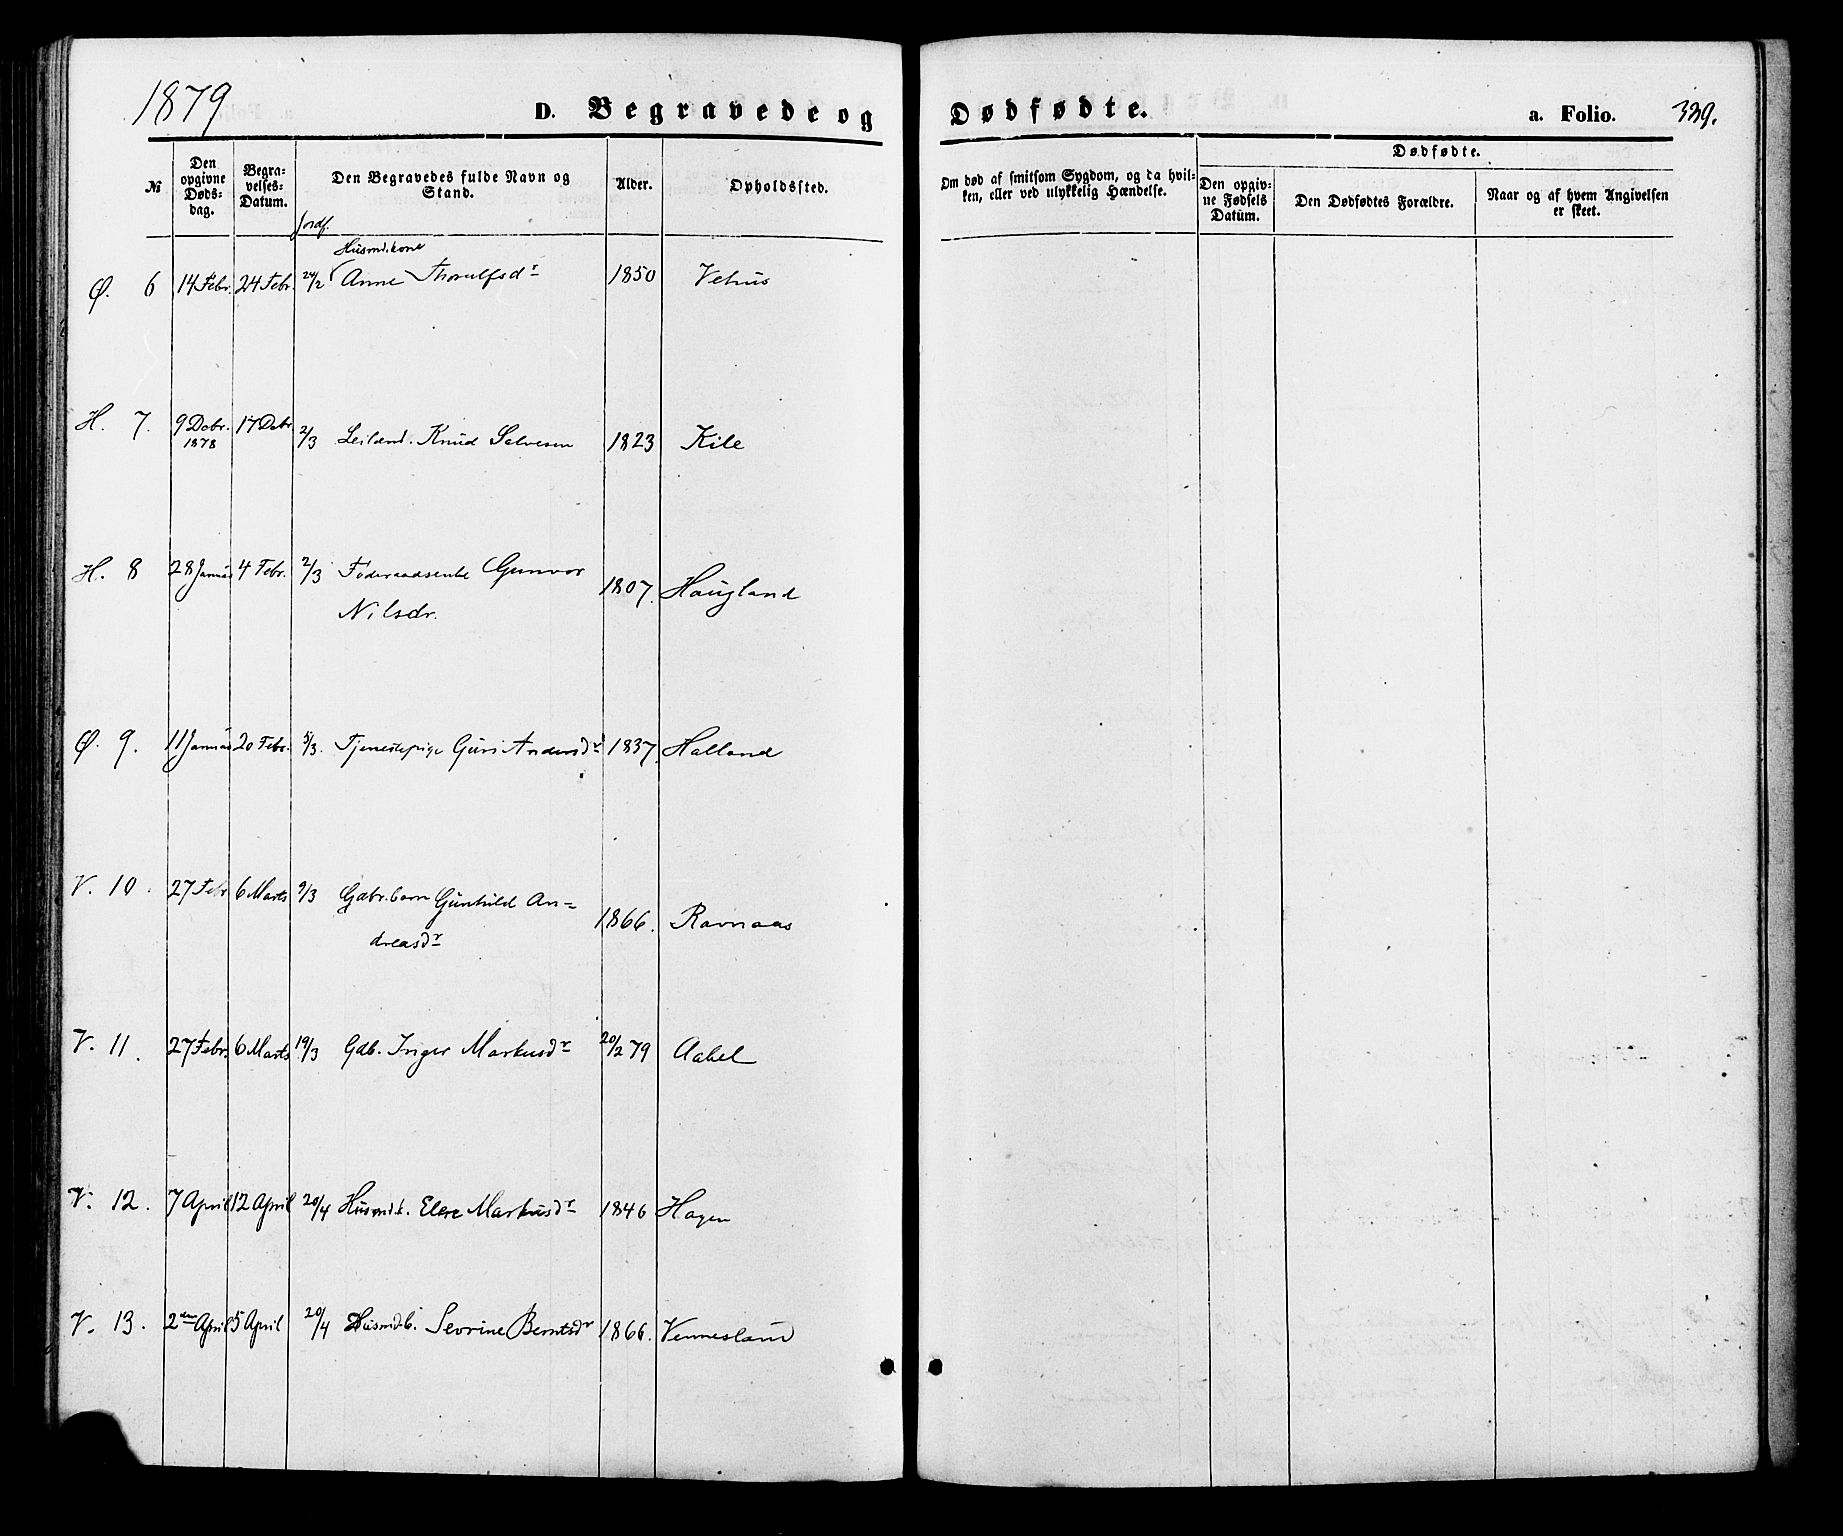 1879
D. Begravede og Dødfødte. a. Folio. 339.
№
Den opgivne Døds-dag.
Begra-velses-Datum.
Den Begravedes fulde Navn og Stand.
Alder.
Opholdssted.
Om død af smitsom Sygdom, og da hvil-
ken, eller ved ulykkelig Hændelse.
Dødfødte.
Den opgiv-
ne Fødsels
Datum.
Den Dødfødtes Forældre.
Naar og af hvem Angivelsen
er skeet.
Jordf.
Husmd.kone
Ø. 6 14 Febr. 24 Febr. 24/2 Anne Thorulfsdr 1850 Vehus
H. 7. 9 Dcbr. 17 Dcbr 2/3 Leilænd. Knud Salvesen 1823 Kile
1878
H. 8 28 Januar 4 Febr. 2/3 Føderaadsenke Gunvor
Nilsdr. 1807. Haugland
Ø. 9. 11 Januar 20 Febr. 5/3. Tjenestepige Guri Andersdr 1837. Halland
V. 10. 27 Febr 6 Marts 9/3 Gdbr.barn Gunhild An=
dreasdr 1866. Ravnaas
V. 11. 27 Febr. 6 Marts 19/3 Gdb. Inger Markusdr 20/2 79 Aabel
V. 12. 7 April 12 April 20/4 Husmd.k. Elene Markusdr 1846 Hagen
V. 13. 2den April 5 April 20/4 Husmd.b. Sevrine Berntsdr 1866. Vennesland